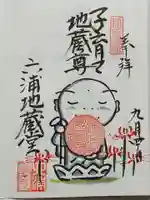 奉拝
子育て
地蔵尊
三浦地蔵堂
九月四日